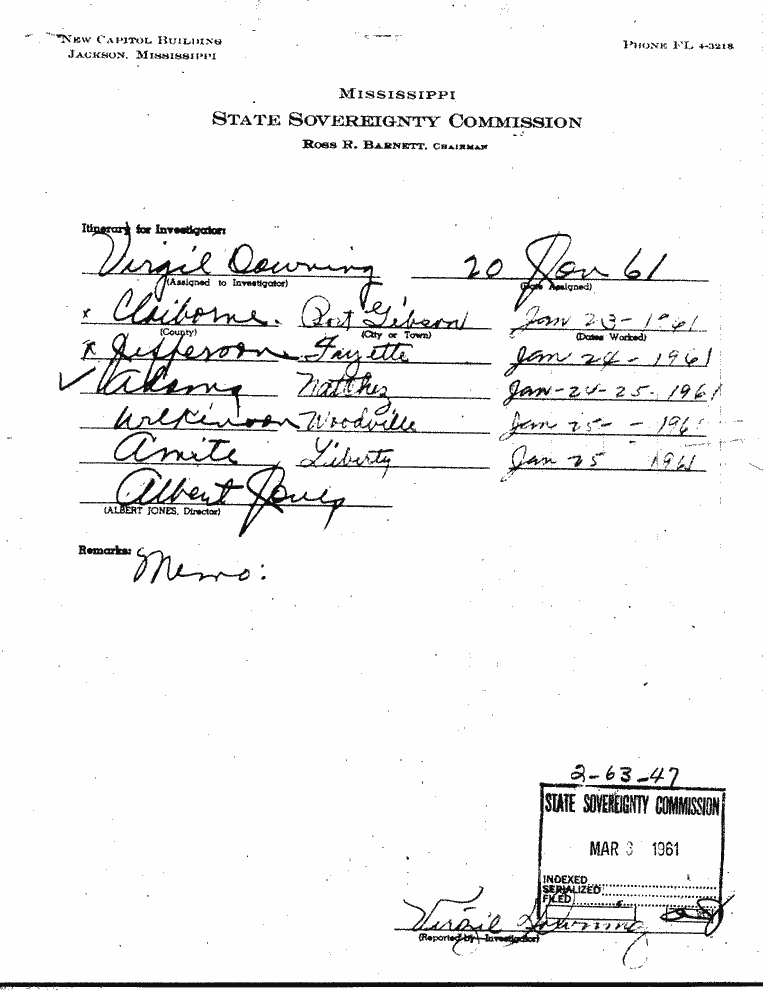 NEW CAPITOL BUILDING
JACKSON, MISSISSIPPI
PHONE FL 4-3218
MISSISSIPPI
STATE SOVEREIGNTY COMMISSION
ROSS R. BARNETT, CHAIRMAN
Itinerary for Investigator:
Virgil Downing 20 Jan 61
(Assigned to Investigator) (Date Assigned)
x Claiborne. Port Gibson Jan 23-1961
(County) (City or Town) (Dates Worked)
x Jefferson Fayette Jan 24-1961
✓ Adams Natchez Jan-24-25-1961
Wilkinson Woodville Jan 25 - - 1961
Amite Liberty Jan 25 1961
Albert Jones
(ALBERT JONES, Director)
Remarks: Memo:
2-63-47
STATE SOVEREIGNTY COMMISSION
MAR 1961
INDEXED
SERIALIZED
FILED
Virgil Downing
(Reported by Investigator)